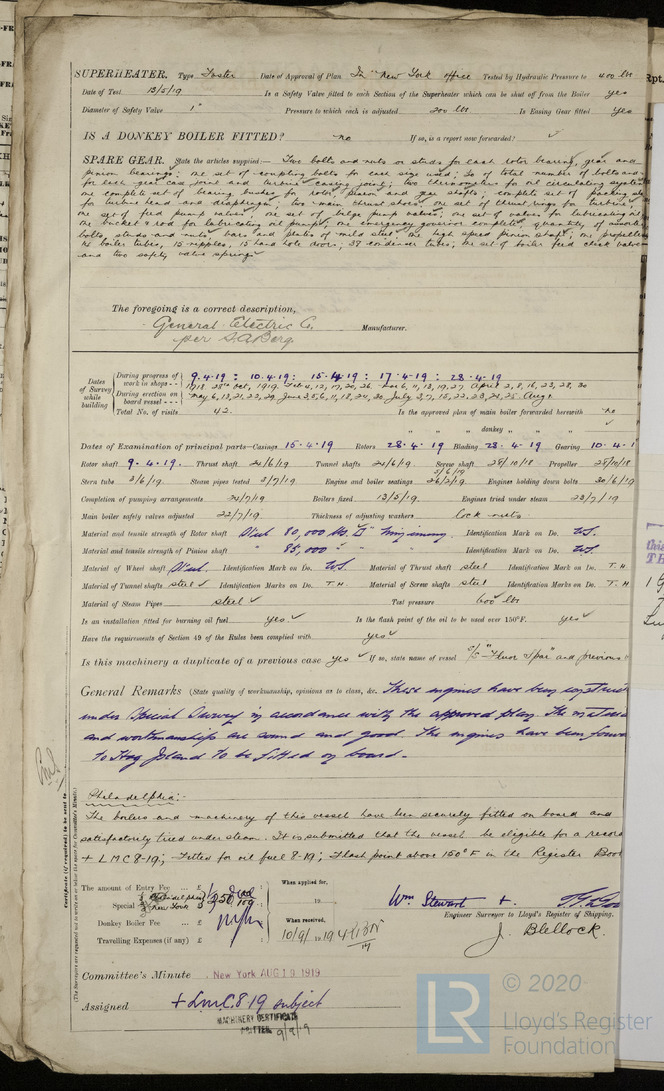 SUPERHEATER. Type Foster Date of Approval of Plan In "New York office Tested by Hydraulic Pressure to 400 lbs
Date of Test 13/5/19 Is a Safety Valve fitted to each Section of the Superheater which can be shut off from the Boiler Yes
Diameter of Safety Valve 1" Pressure to which each is adjusted 200 lbs Is Easing Gear fitted Yes
IS A DONKEY BOILER FITTED? no If so, is a report now forwarded? ✓
SPARE GEAR. State the articles supplied:— Two bolts and nuts or studs for each rotor bearing, gear and
pinion bearings; one set of coupling bolts for each size used; 20 of total number of bolts and
for each gear case joint and turbine casing joint; two thermometers for oil circulating system
one complete set of bearing bushes for rotor, pinion and gear shafts; complete set of packing
for turbine head and diaphragm; two main thrust shoes; one set of thrust rings for turbine
one set of feed pump valves; one set of bilge pump valves; one set of valves for lubricating oil
one bucket & rod for lubricating oil pump; one emergency governor complete; quantity of
bolts, studs and nuts; bars and plates of mild steel; one high speed pinion shaft; one propeller
boiler tubes, 15 nipples, 15 hand hole doors; 39 condenser tubes; one set of boiler feed check valves
and two safety valve springs
The foregoing is a correct description,
General Electric Co.
per S.A. Berg Manufacturer.
Dates of Survey while building
During progress of work in shops - - 9.4.19 : 10.4.19 : 15.4.19 : 17.4.19 : 28.4.19
1918 28th Oct, 1919 Feb 4, 12, 17, 20, 26. Mar 6, 11, 13, 19, 27 April 2, 8, 16, 23, 28, 30
During erection on board vessel - - - May 6, 13, 21, 22, 29, June 3, 5, 6, 11, 18, 24, 30, July 3, 7, 15, 22, 23, 24, 25. Aug 1
Total No. of visits 42. Is the approved plan of main boiler forwarded herewith no
" " " donkey " " " ✓
Dates of Examination of principal parts—Casings 15.4.19 Rotors 28.4.19 Blading 28.4.19 Gearing 10.4.1
Rotor shaft 9.4.19. Thrust shaft 24/6/19 Tunnel shafts 24/6/19 Screw shaft 28/10/18 Propeller 28/10/18
Stern tube 3/6/19 Steam pipes tested 3/7/19 Engine and boiler seatings 26/2/19 3/6/19 Engines holding down bolts 30/6/19
Completion of pumping arrangements 24/7/19 Boilers fixed 13/5/19 Engines tried under steam 23/7/19
Main boiler safety valves adjusted 22/7/19 Thickness of adjusting washers lock nuts
Material and tensile strength of Rotor shaft Steel 80,000 lbs □" Identification Mark on Do. WS.
Material and tensile strength of Pinion shaft " 85,000 " " " Identification Mark on Do. WS.
Material of Wheel shaft Steel. Identification Mark on Do. WS. Material of Thrust shaft steel Identification Mark on Do. T.H
Material of Tunnel shafts steel ✓ Identification Marks on Do. T.H Material of Screw shafts steel Identification Marks on Do. T.H
Material of Steam Pipes steel ✓ Test pressure 600 lbs
Is an installation fitted for burning oil fuel yes ✓ Is the flash point of the oil to be used over 150°F. yes ✓
Have the requirements of Section 49 of the Rules been complied with yes ✓
Is this machinery a duplicate of a previous case yes ✓ If so, state name of vessel S/S "Fluor Spar" and previous
General Remarks (State quality of workmanship, opinions as to class, &c. These engines have been
under Special Survey in accordance with the approved plan. The
and workmanship are sound and good. The engines have been
to Hog Island to be fitted on board.
Philadelphia:-
The boilers and machinery of this vessel have been securely fitted on board and
satisfactorily tried under steam. It is submitted that the vessel be eligible for a record
+ LMC 8-19; Fitted for oil fuel 8-19; Flash point above 150°F in the Register Book
Certificate (if required) to be sent to
(The Surveyors are requested not to write on or below the space for Committee's Minute.)
The amount of Entry Fee ... £
Special ... £ Philadelphia New York
Donkey Boiler Fee ... £
Travelling Expenses (if any) £
When applied for,
When received,
10/9/1919
Wm Stewart +
Engineer Surveyor to Lloyd's Register of Shipping.
J. Blellock.
Committee's Minute New York AUG 19 1919
Assigned + LMC 8 19 subject
MACHINERY CERTIFICATE
WRITTEN 9/9/19
© 2020
LR
Lloyd's Register
Foundation